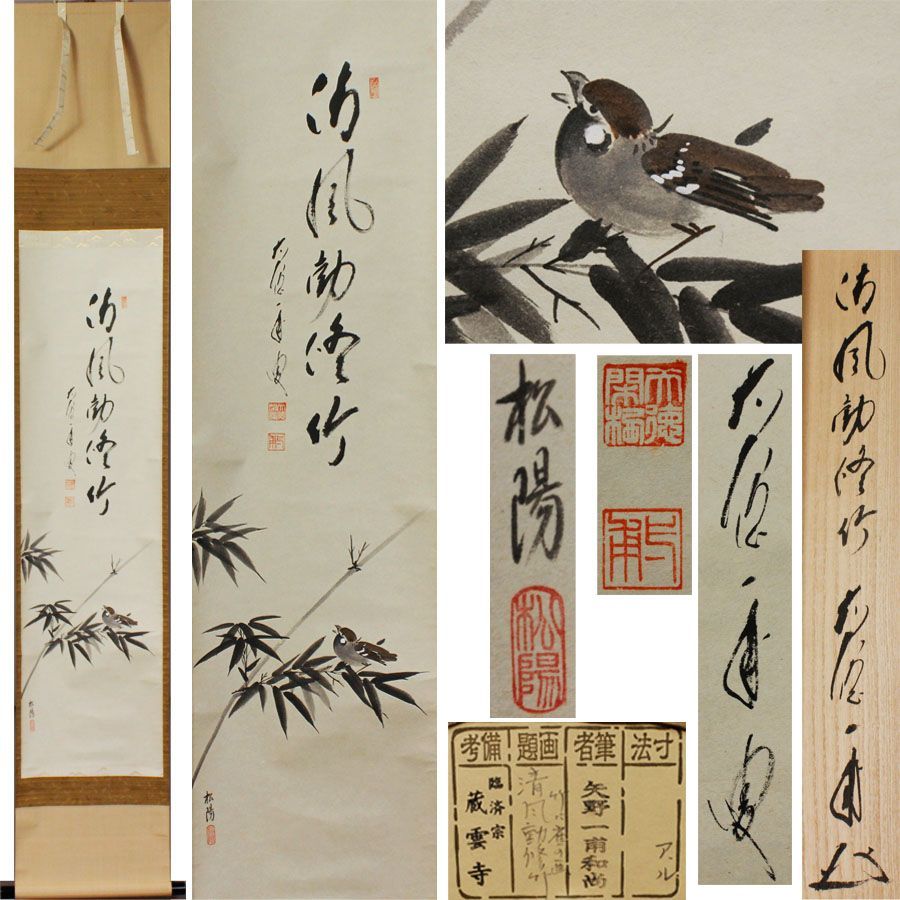 清風動修竹
大徳一甫叟
松陽
清風動修竹
大徳一甫叟
松陽
松陽
松陽
大徳
閑栖
大徳一甫叟
清風動修竹 大徳一甫
寸法
筆者
矢野一甫和尚
画題
竹に雀の画
清風動修竹
備考
臨済宗
蔵雲寺